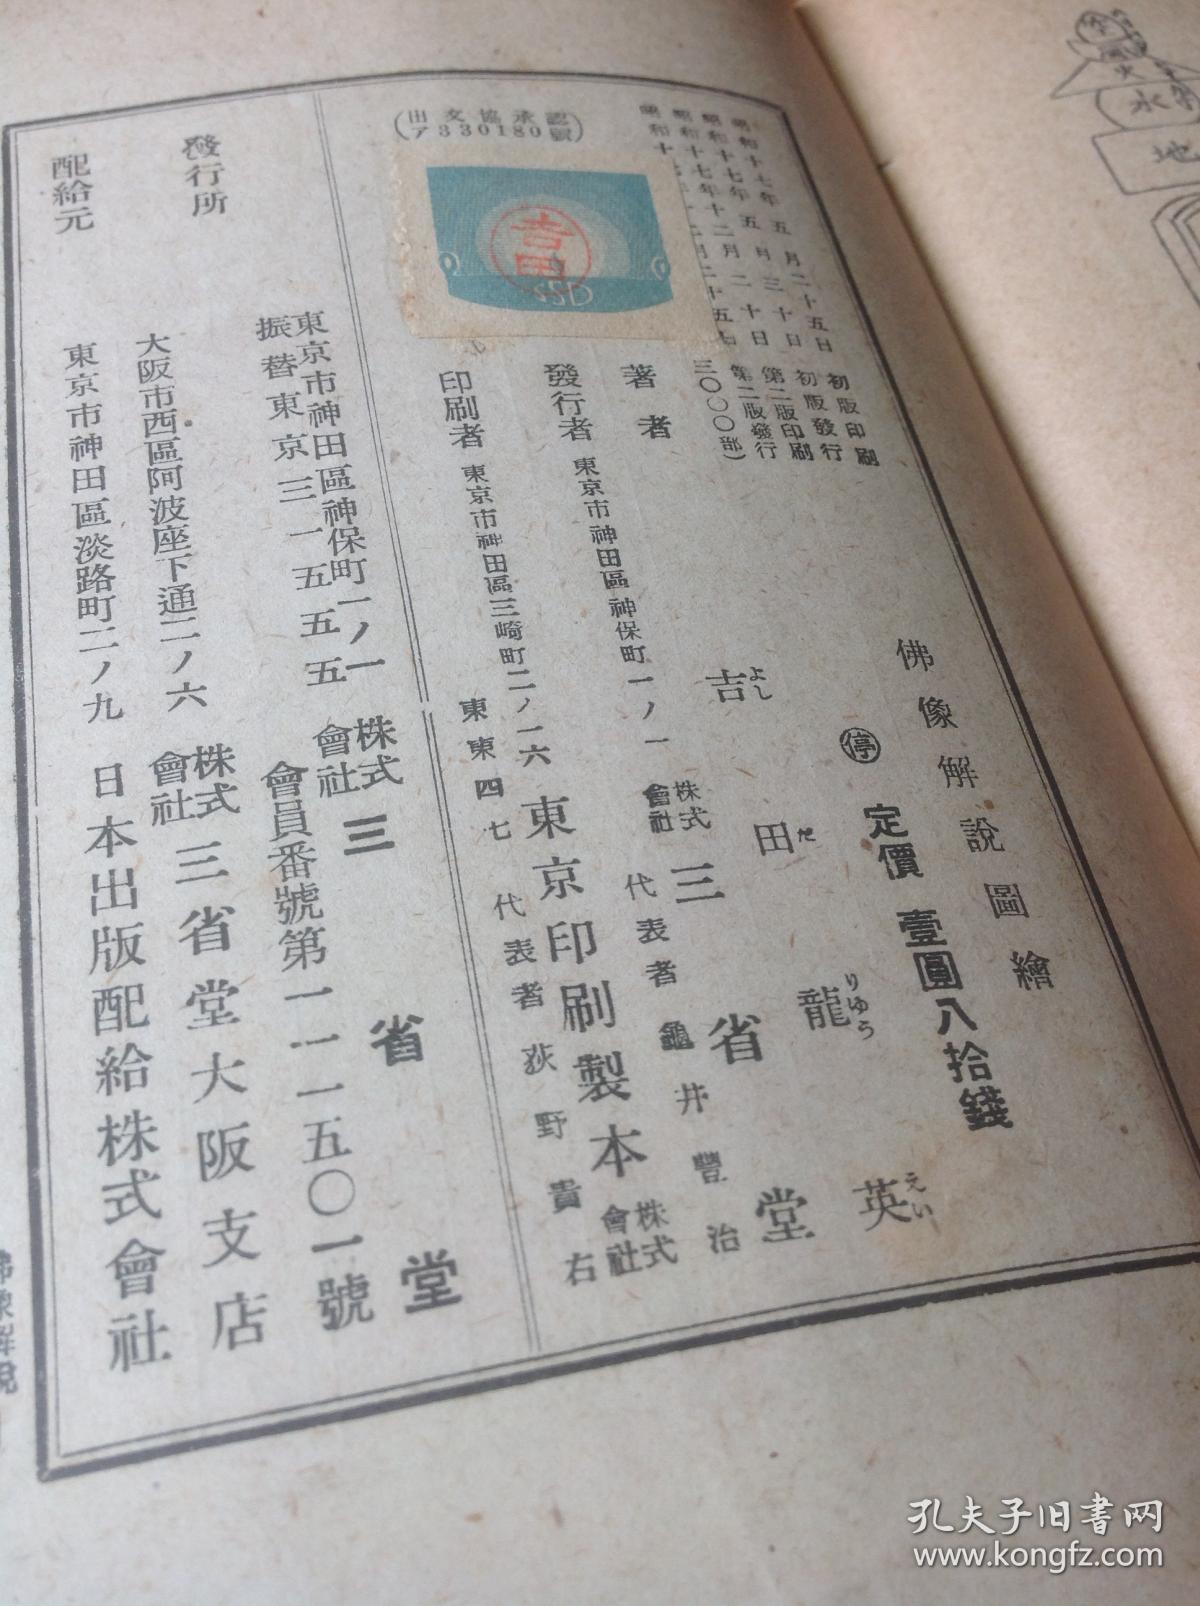 佛像解說圖繪
停 定價 壹圓八拾錢
昭和十七年五月二十五日 初版印刷
昭和十七年五月三十日 初版發行
昭和十七年十二月二十日 第二版印刷
第二版發行
三〇〇〇部)
著者 吉田龍英
よし だ りゆう えい
發行者 東京市神田區神保町一ノ一 株式會社 三省堂
代表者 龜井豐治
印刷者 東京市神田區三崎町二ノ一六 東京印刷製本株式會社
東東四七 代表者 荻野貴右
(出文協承認
ア330180號)
吉田
SSD
發行所 東京市神田區神保町一ノ一 株式會社 三省堂
振替東京三一五五五 會員番號第一一一五〇一號
大阪市西區阿波座下通二ノ六 株式會社 三省堂大阪支店
配給元 東京市神田區淡路町二ノ九 日本出版配給株式會社
佛像解說
火
水
地
孔夫子旧书网
www.kongfz.com